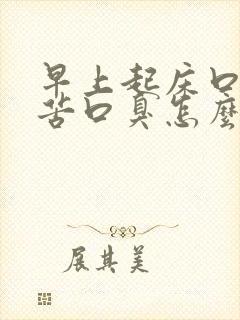 早上起床口
苦口臭怎麼
展其美